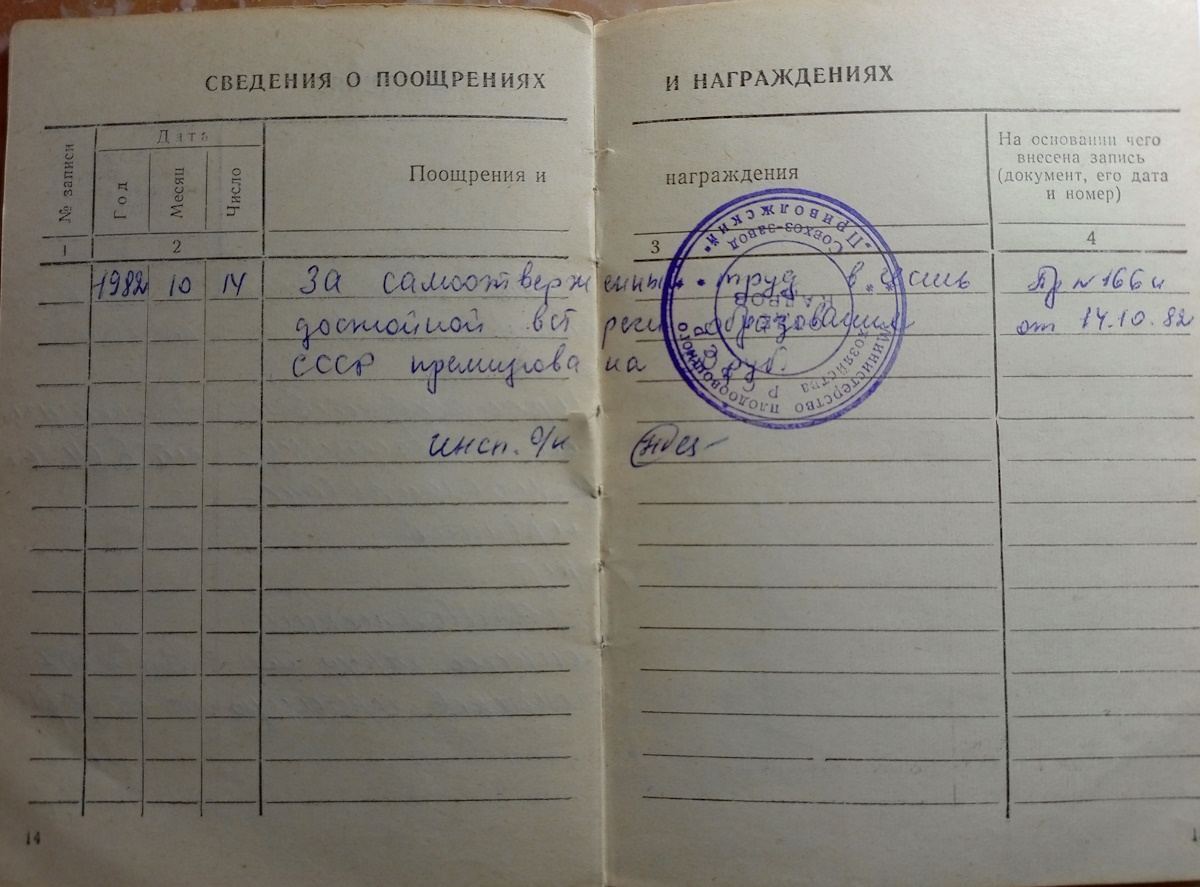 СВЕДЕНИЯ О ПООЩРЕНИЯХ И НАГРАЖДЕНИЯХ
№ записи
Дата
Год
Месяц
Число
Поощрения и награждения
На основании чего
внесена запись
(документ, его дата
и номер)
1 2 3 4
1982 10 14 За самоотверженный труд в честь Пр №166к
достойной встречи образования от 14.10.82
СССР премирована руб.
Инсп. о/к
Министерство плодоовощного хозяйства
Р С Ф С Р
Совхоз-завод
"Приволжский"
КАДРОВ
14